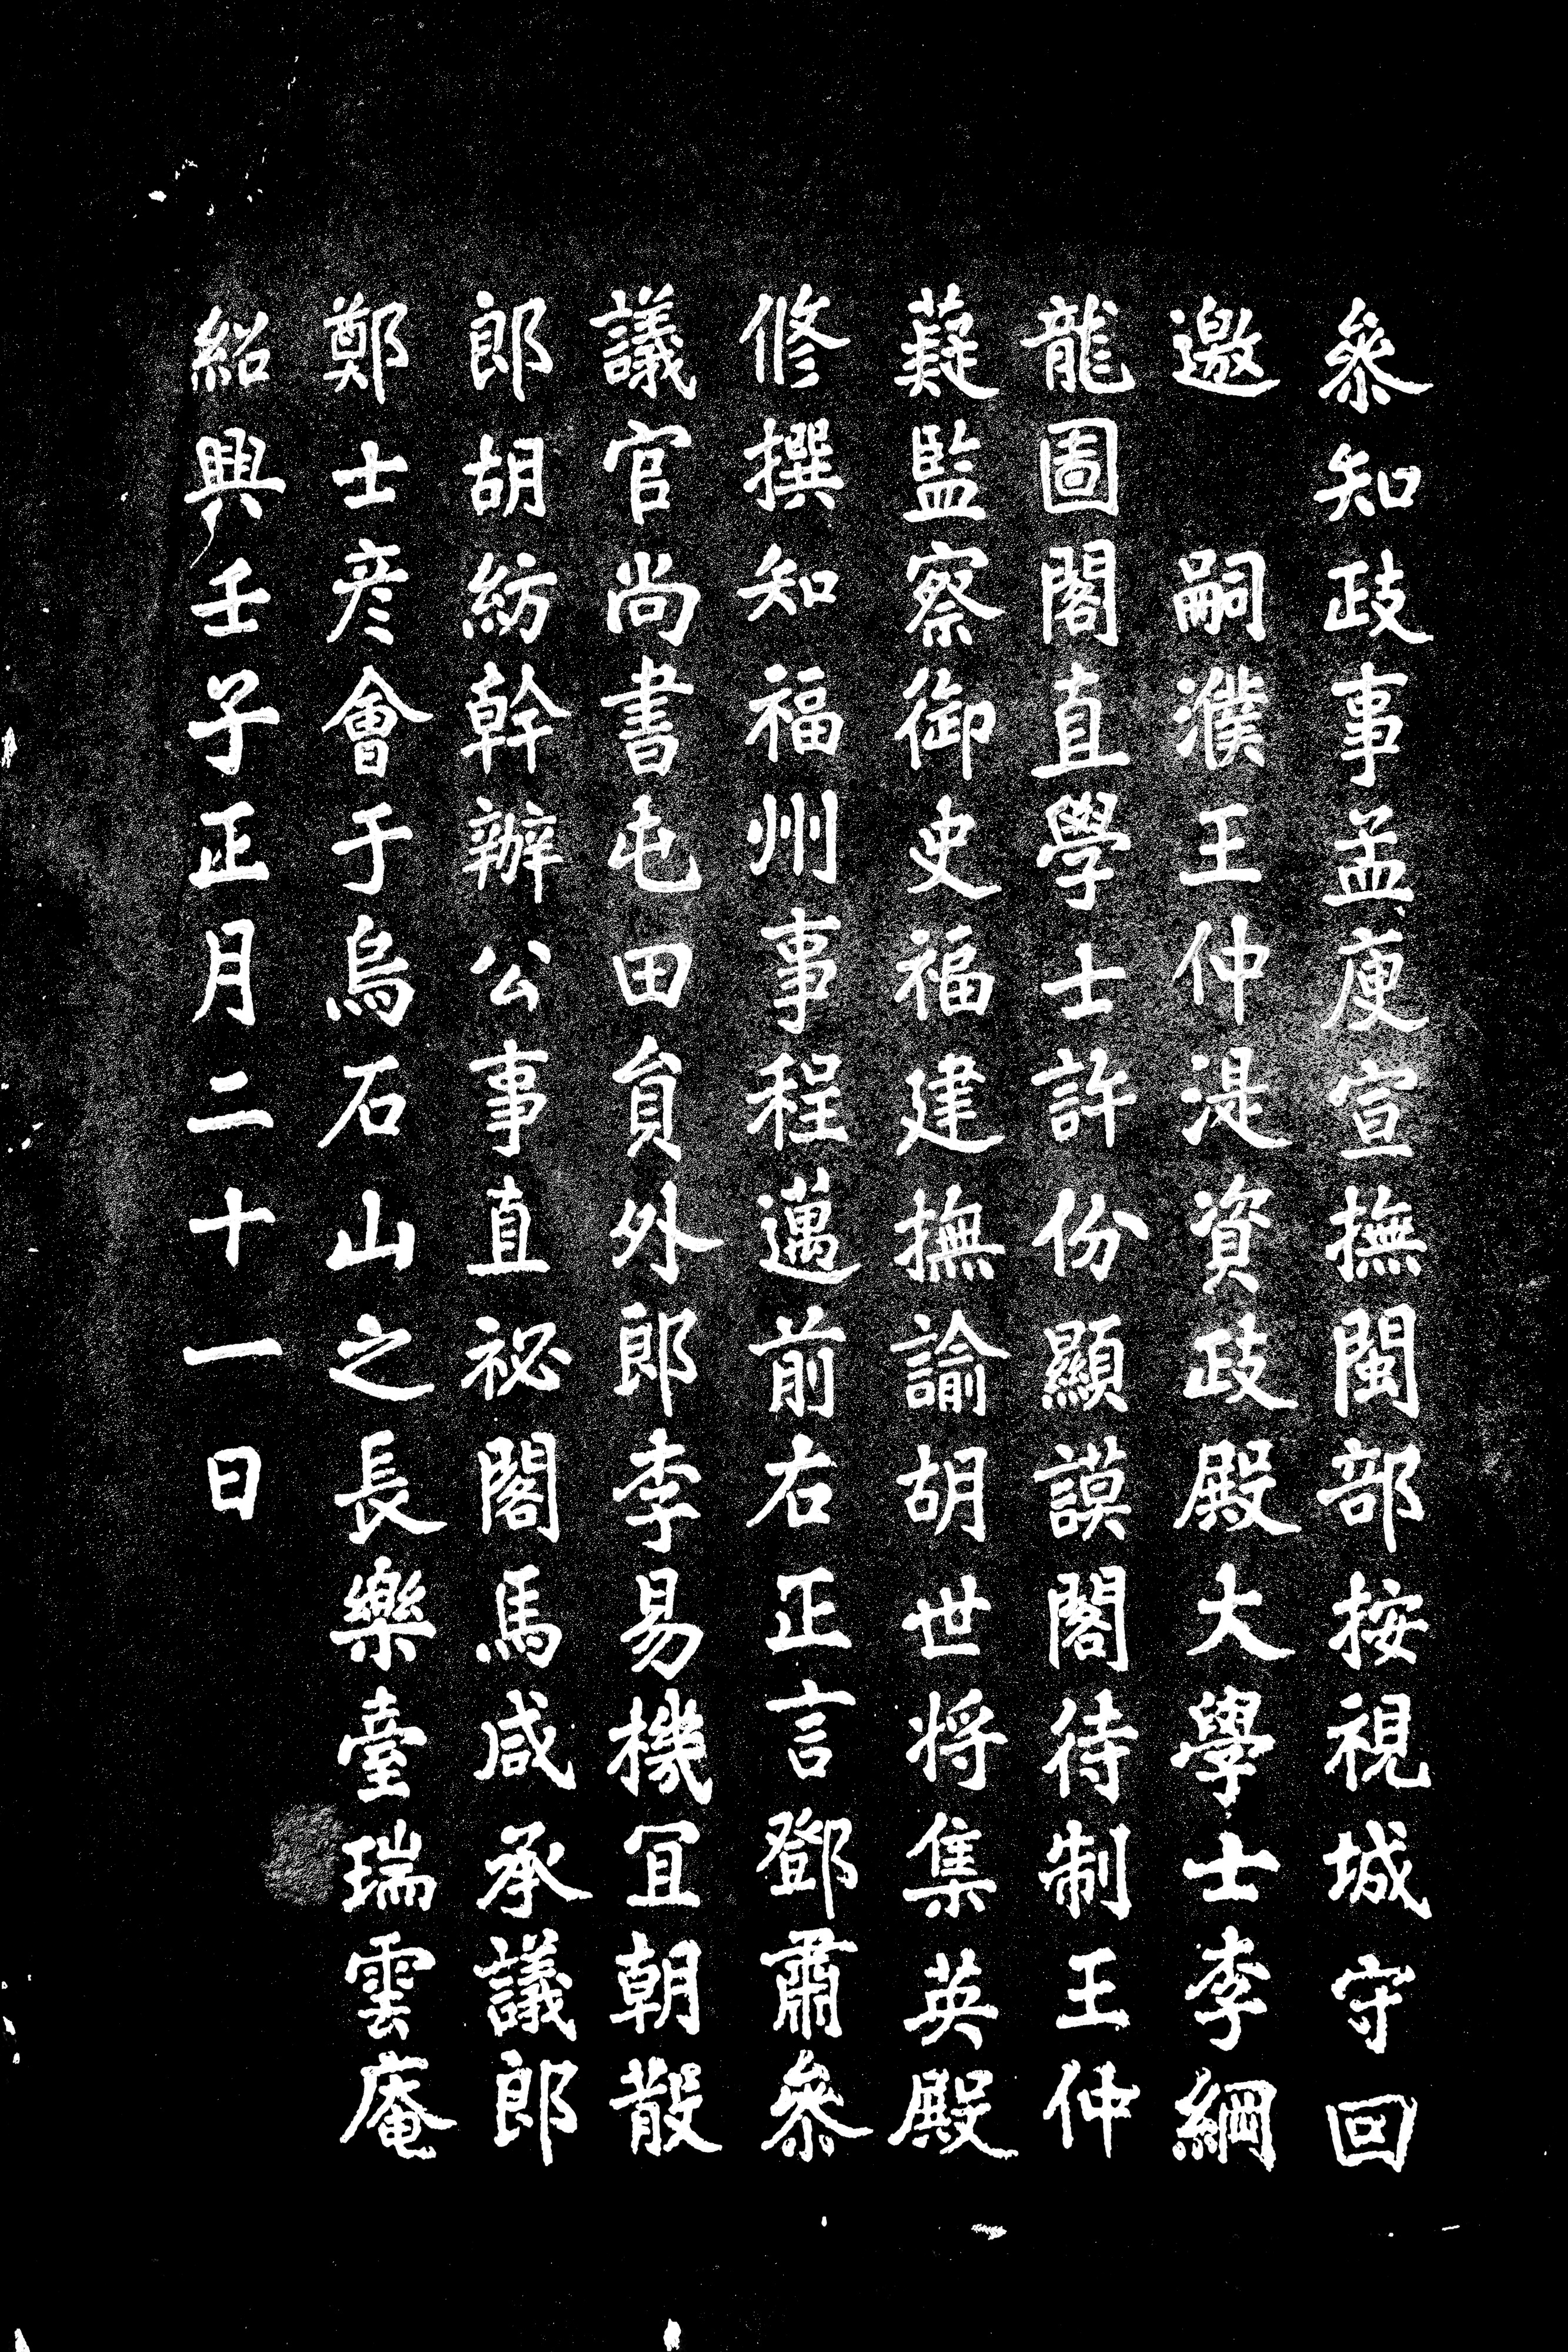 參知政事孟庾宣撫閩部按視城守回
邀　嗣濮王仲湜資政殿大學士李綱
龍圖閣直學士許份顯謨閣待制王仲
薿監察御史福建撫諭胡世将集英殿
修撰知福州事程邁前右正言鄧肅參
議官尚書屯田貟外郎李易機冝朝散
郎胡紡幹辦公事直祕閣馬咸承議郎
鄭士彦會于烏石山之長樂臺瑞雲庵
紹興壬子正月二十一日